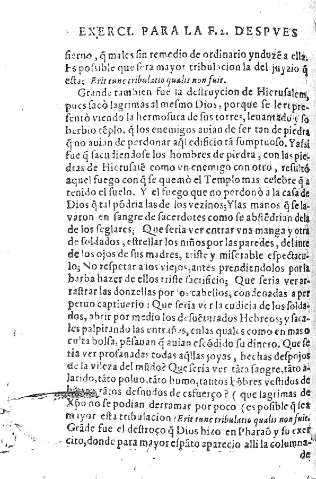 EXERCI. PARA LA F. 2. DESPVES
fierno, q̃ males sin remedio de ordinario ynduze a ella.
Es possible que sera mayor tribulacion la del juyzio q̃
esta: Erit tunc tribulatio qualis non fuit.
Grande tambien fue la destruycion de Hierusalem,
pues sacò lagrimas al mesmo Dios, porque se le represento
viendo la hermosura de sus torres, leuantado y so
berbio tẽplo, q̃ los enemigos auian de ser tan de piedra
q̃ no auian de perdonar aql edificio tã sumptuoso. Y assi
fue q̃ sacudiendose los hombres de piedra, con las pie
dras de Hierusalẽ como vn enemigo con otro, resultò
aquel fuego con q̃ se quemò el Templo mas celebre q̃ a
tenido el suelo. Y el fuego que no perdonò a la casa de
Dios q̃ tal põdria las de los vezinos; Y las manos q̃ se la
uaron en sangre de sacerdotes como se abstẽdrian de la
de los seglares; Que seria ver entrar vna manga y otra
de soldados, estrellar los niños por las paredes, delante
de los ojos de sus madres, triste y miserable espectacu-
lo; No respetar a los viejos, antes prendiendolos por la
barba hazer de ellos triste sacrificio; Que seria ver ar-
rastrar las donzellas por los cabellos, condenadas a per
petuo captiuerio: Que seria ver la cudicia de los solda-
dos, abrir por medio los desuẽturados Hebreos; y saca-
les palpitando las entrañas, en las quales como en mas o
culta bolsa, pẽsauan q̃ auian escõdido su dinero. Que se
ria ver profanadas todas aq̃llas joyas, hechas despojos
de la vileza del mũdo? Que seria ver tãta sangre, tãto a-
larido, tãto poluo, tãto humo, tantos hõbres vestidos de
tãtos desnudos de esfuerço? ( que lagrimas de
Xp̃o no se podian derramar por poco (es possible q̃ sea
mayor esta tribulacion Erit tunc tribulatio qualis non fuit.
Grãde fue el destroço q̃ Dios hizo en Pharaõ y su exer
cito, donde para mayor espãto aparecio alli la columna-
de